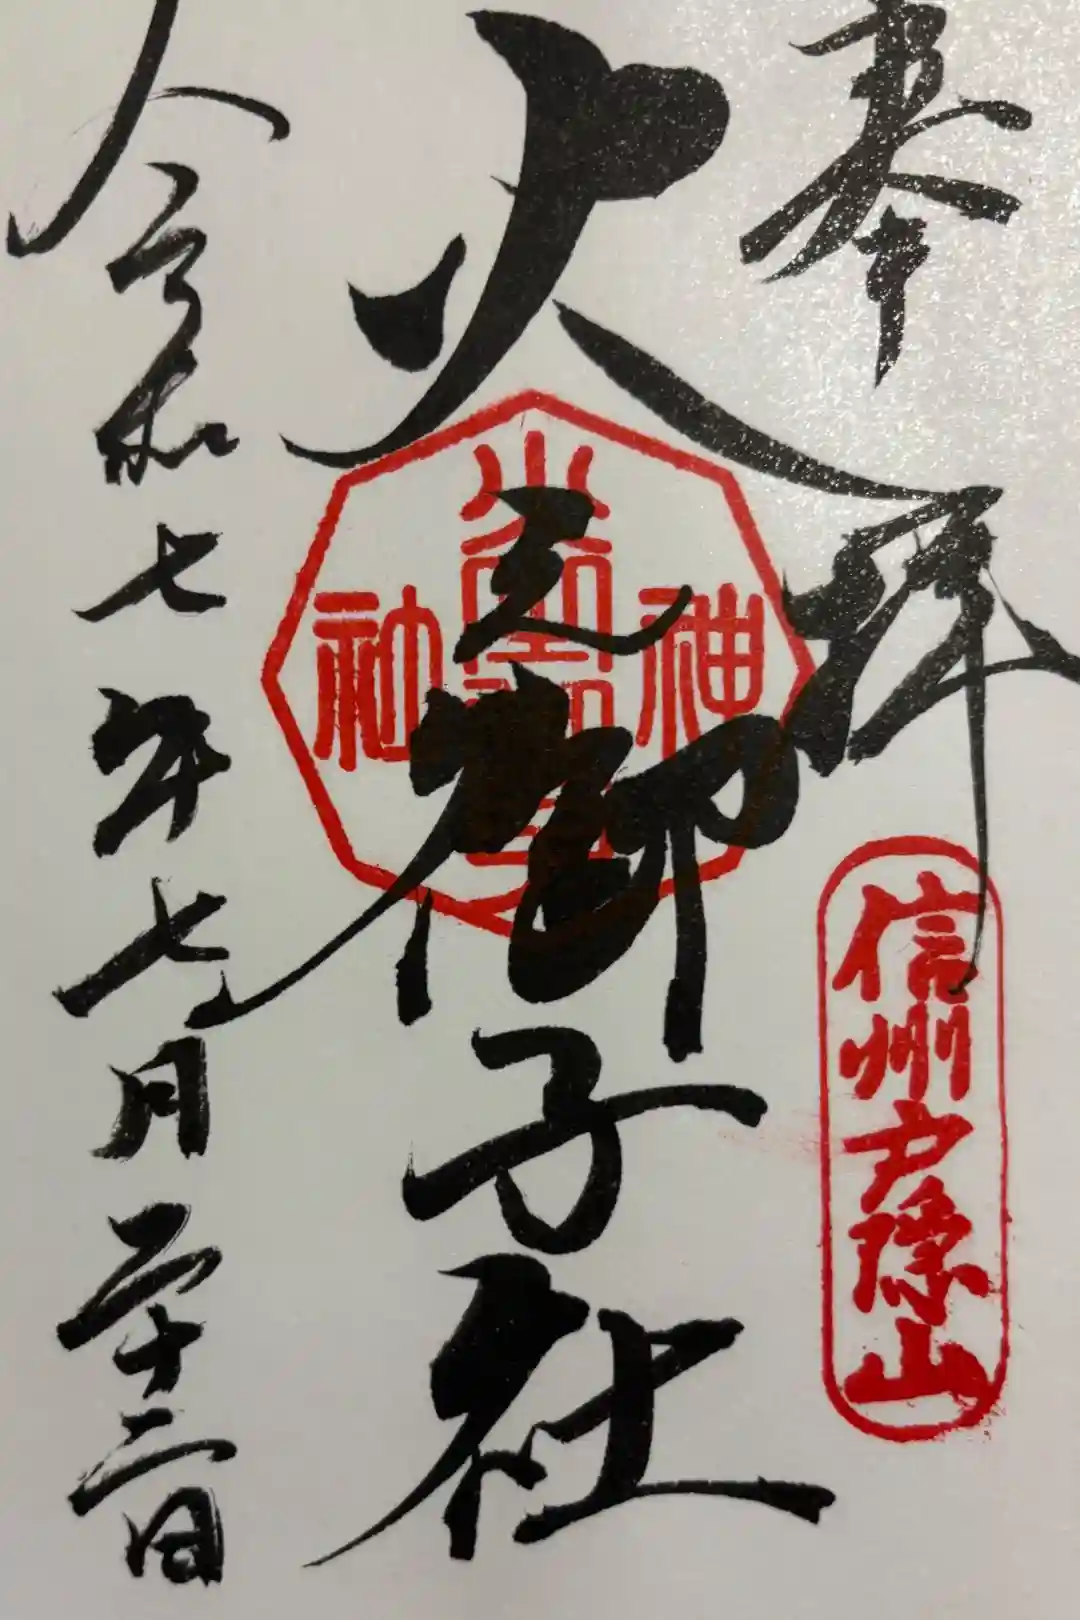 奉拝
信州戸隠山
火之御子社
神社
令和七年七月二十二日